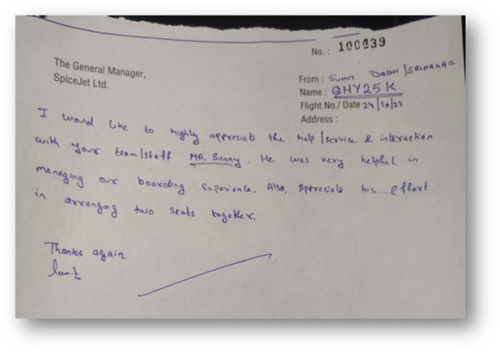 No.: 100439
The General Manager,
SpiceJet Ltd.
From: Sunny Delhi/SRINAGAR
Name: QHY25K
Flight No./Date 24/10/23
Address:
I would like to highly appreciate the help/service & interaction
with your team/staff MR. Sunny. He was very helpful in
managing our boarding Experience. Also, Appreciate his effort
in arranging two seats together.
Thanks again